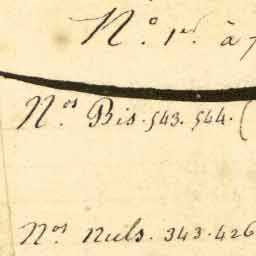 N.º 1er. à
N.os Bis. 543. 544. (
N.os nuls. 343. 426